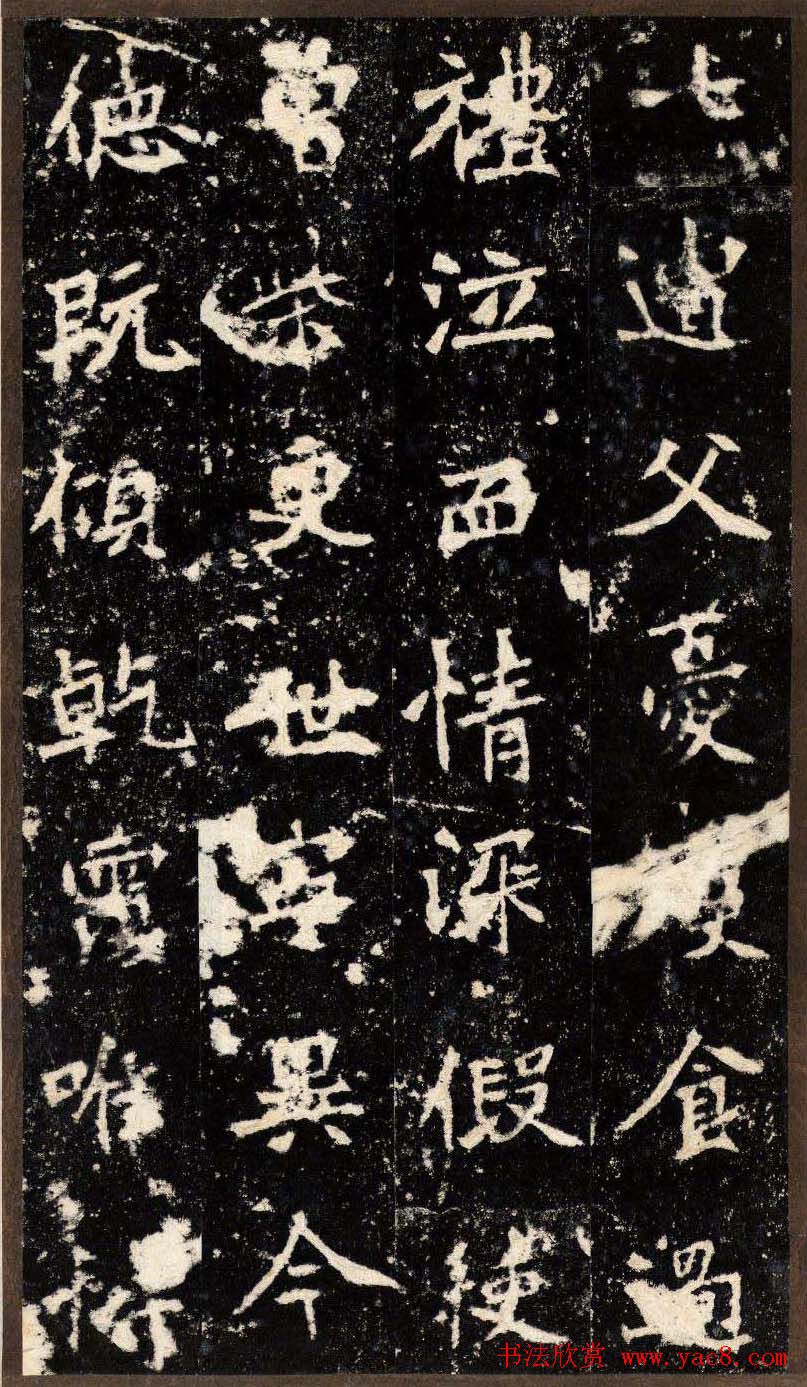 七遭父憂寢食過
禮泣血情深假使
曾柴更世寧異今
德既傾乾覆唯恃
书法欣赏 www.yac8.com